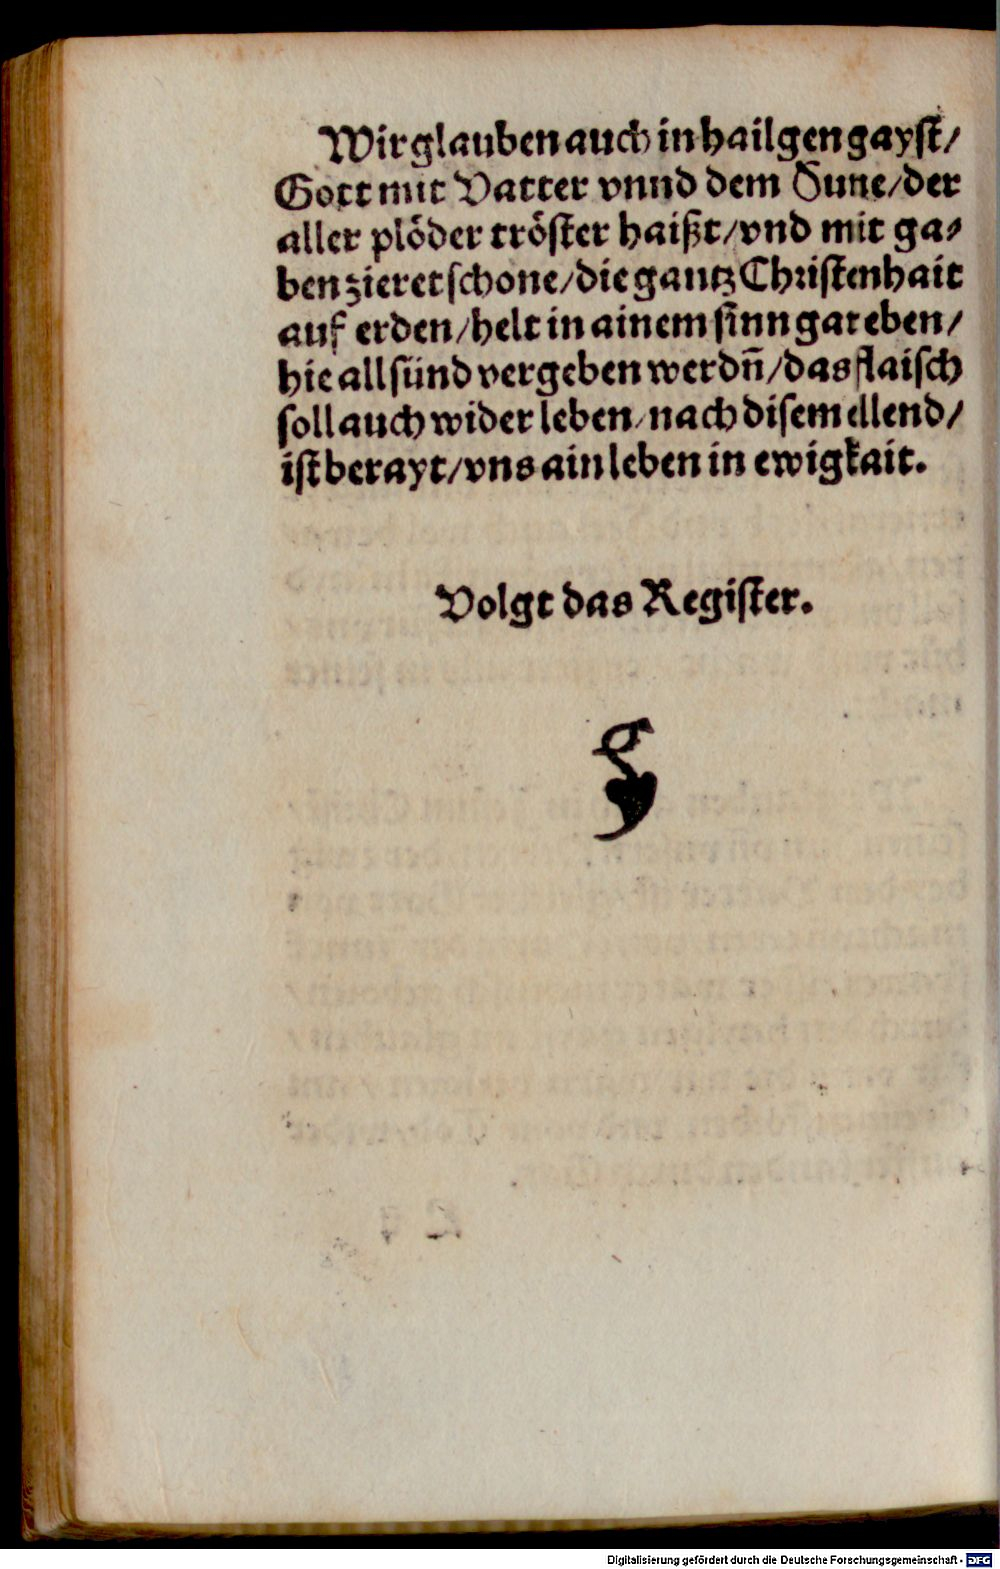 Wir glauben auch in hailgen gayst/
Gott mit Vatter vnnd dem Sune/der
aller plöder tröster haißt/vnd mit ga⸗
ben zieret schone/die gantz Christenhait
auf erden/helt in ainem sinn gar eben/
hie all sünd vergeben werdn̄/das flaisch
soll auch wider leben/nach disem ellend/
ist berayt/vns ain leben in ewigkait.
Volgt das Register.
Digitalisierung gefördert durch die Deutsche Forschungsgemeinschaft - DFG